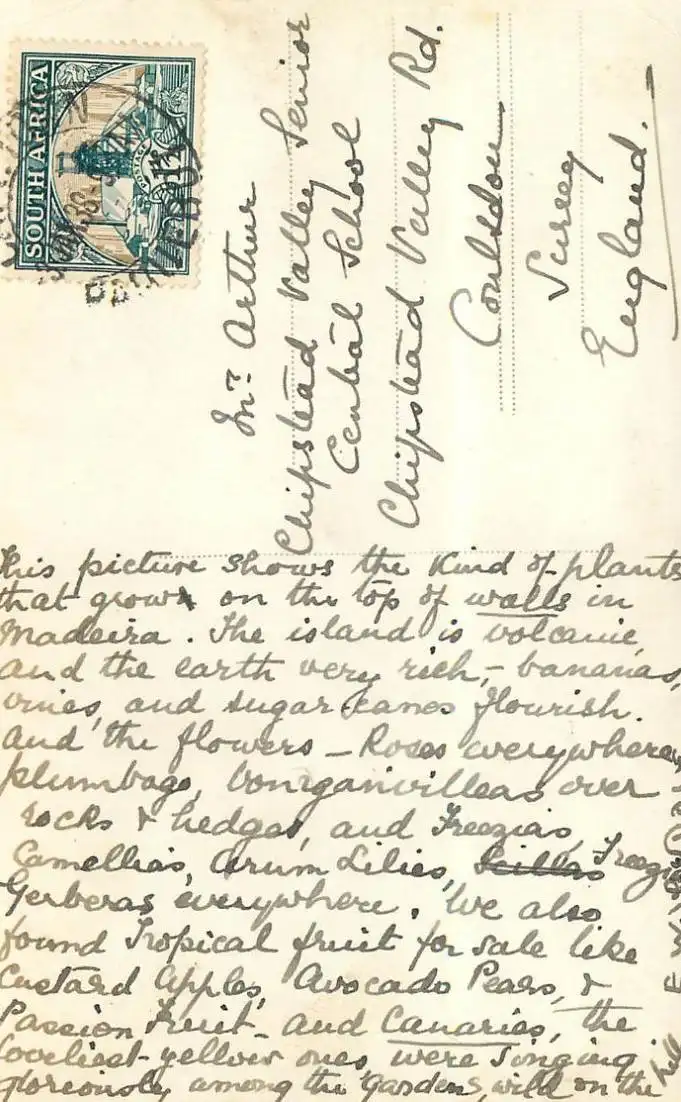 SOUTH AFRICA
POSTAGE
PAQUEBOT
Mr. Arthur
Chipstead Valley Senior
Central School
Chipstead Valley Rd.
Coulsdon
Surrey
England.
This picture shows the kind of plants
that grow on the top of walls in
Madeira. The island is volcanic
and the earth very rich, - bananas,
vines, and sugar-canes flourish.
And the flowers - Roses everywhere,
plumbago, bourganvilleas over
rocks & hedges, and Freezias,
Camellias, Arum Lilies, Scillas
Gerberas everywhere. We also
found Tropical fruit for sale like
Custard Apples, Avocado Pears, &
Passion Fruit - and Canaries, the
loveliest yellow ones, were singing
gloriously among the gardens, wild on the